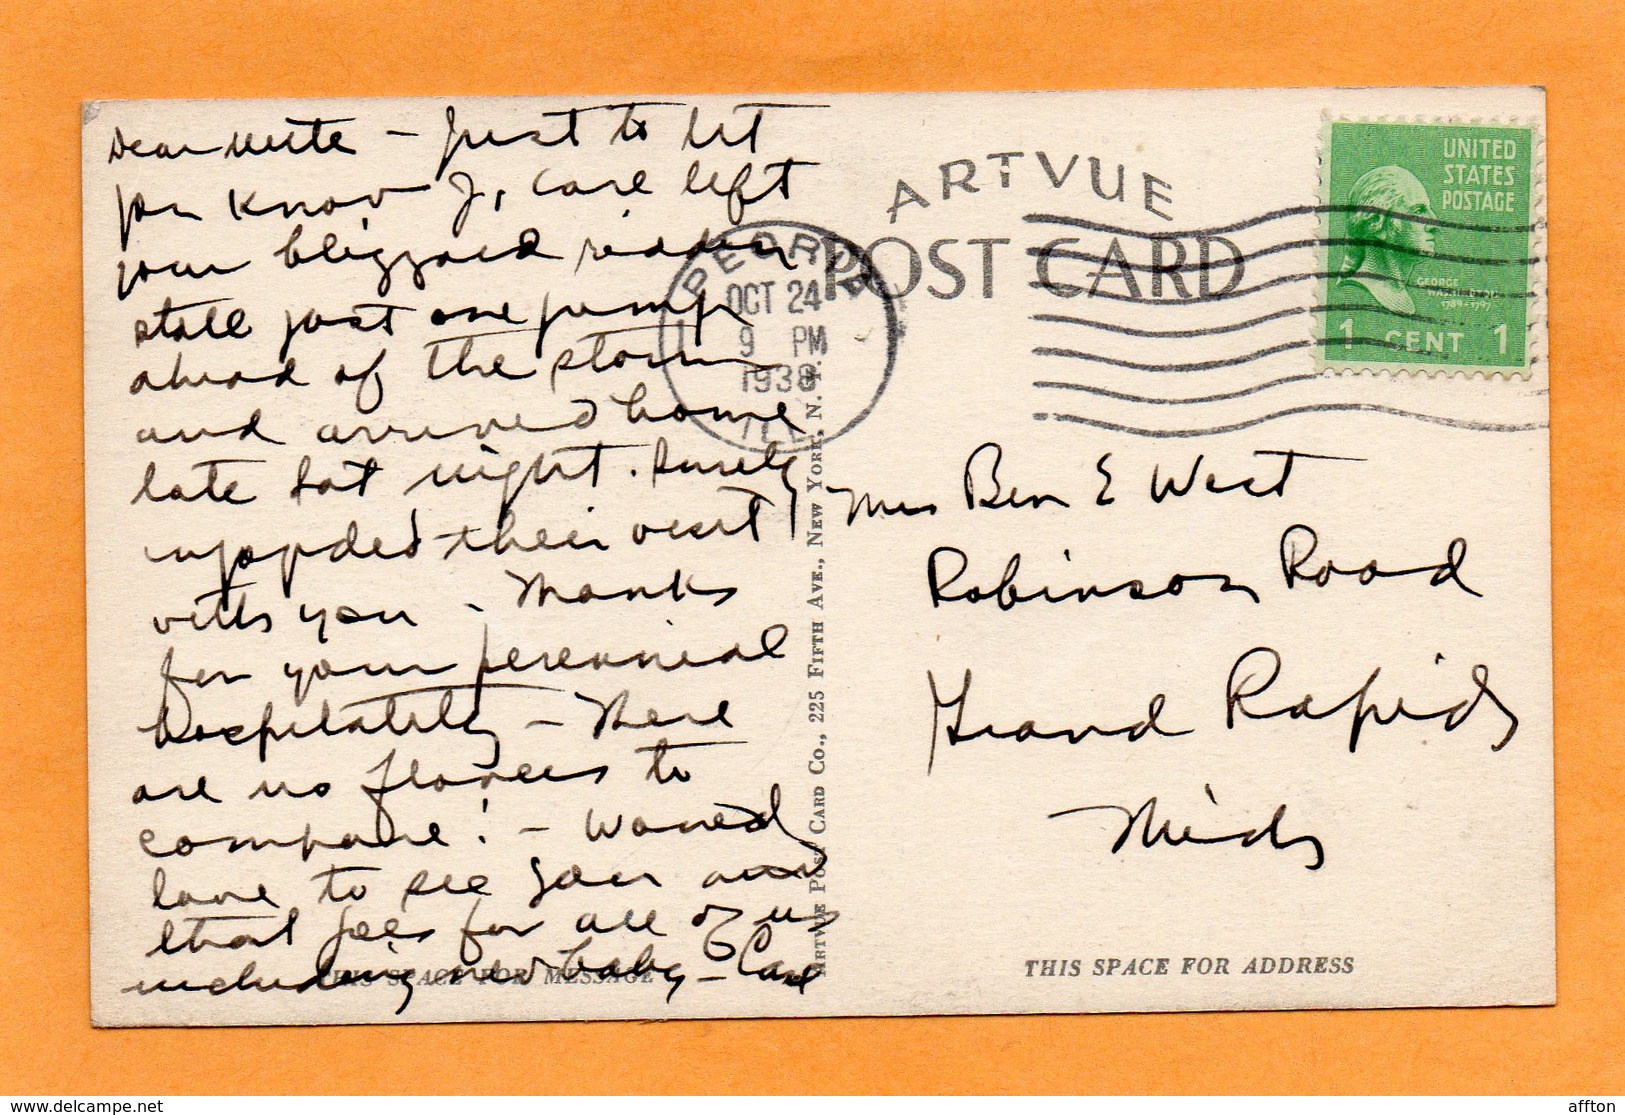 Dear - Just to let
you know J, Carl left
your blizzard ridden
state just one jump
ahead of the storm
and arrived home
late Sat night. Surely
enjoyed their visit
with you - Thanks
for your perennial
hospitality - There
are no flowers to
compare! - Would
love to see you and
that goes for all of us
including new baby - Carl
THIS SPACE FOR MESSAGE
PEORIA
OCT 24
9 PM
1938
ILL.
ARTVUE POST CARD CO., 225 FIFTH AVE., NEW YORK, N. Y.
ARTVUE
POST CARD
UNITED
STATES
POSTAGE
GEORGE
WASHINGTON
1789-1797
1 CENT 1
Mrs Ben E West
Robinson Road
Grand Rapids
Mich
THIS SPACE FOR ADDRESS
delcampe.net
affton